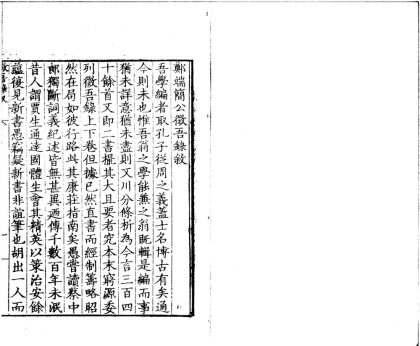 鄭端簡公徵吾錄敘
吾學編者取孔子從周之義蓋士名博古有矣通
今則未也惟吾翁之學能兼之翁旣輯是編而事
猶未詳意猶未盡則又川分條析為今言三百四
十餘首又即二書擥其大且要者究本末窮源委
列徵吾錄上下卷但據已然直書而經制籌略昭
然在局如彼行路此其康莊指南矣愚嘗讀蔡中
郎獨斷詞義紀述皆無甚異迺傳千數百年未泯
昔人謂賈生通達國體生會其精英以策治安餘
蘊後見新書愚竊疑新書非誼筆也胡出一人而